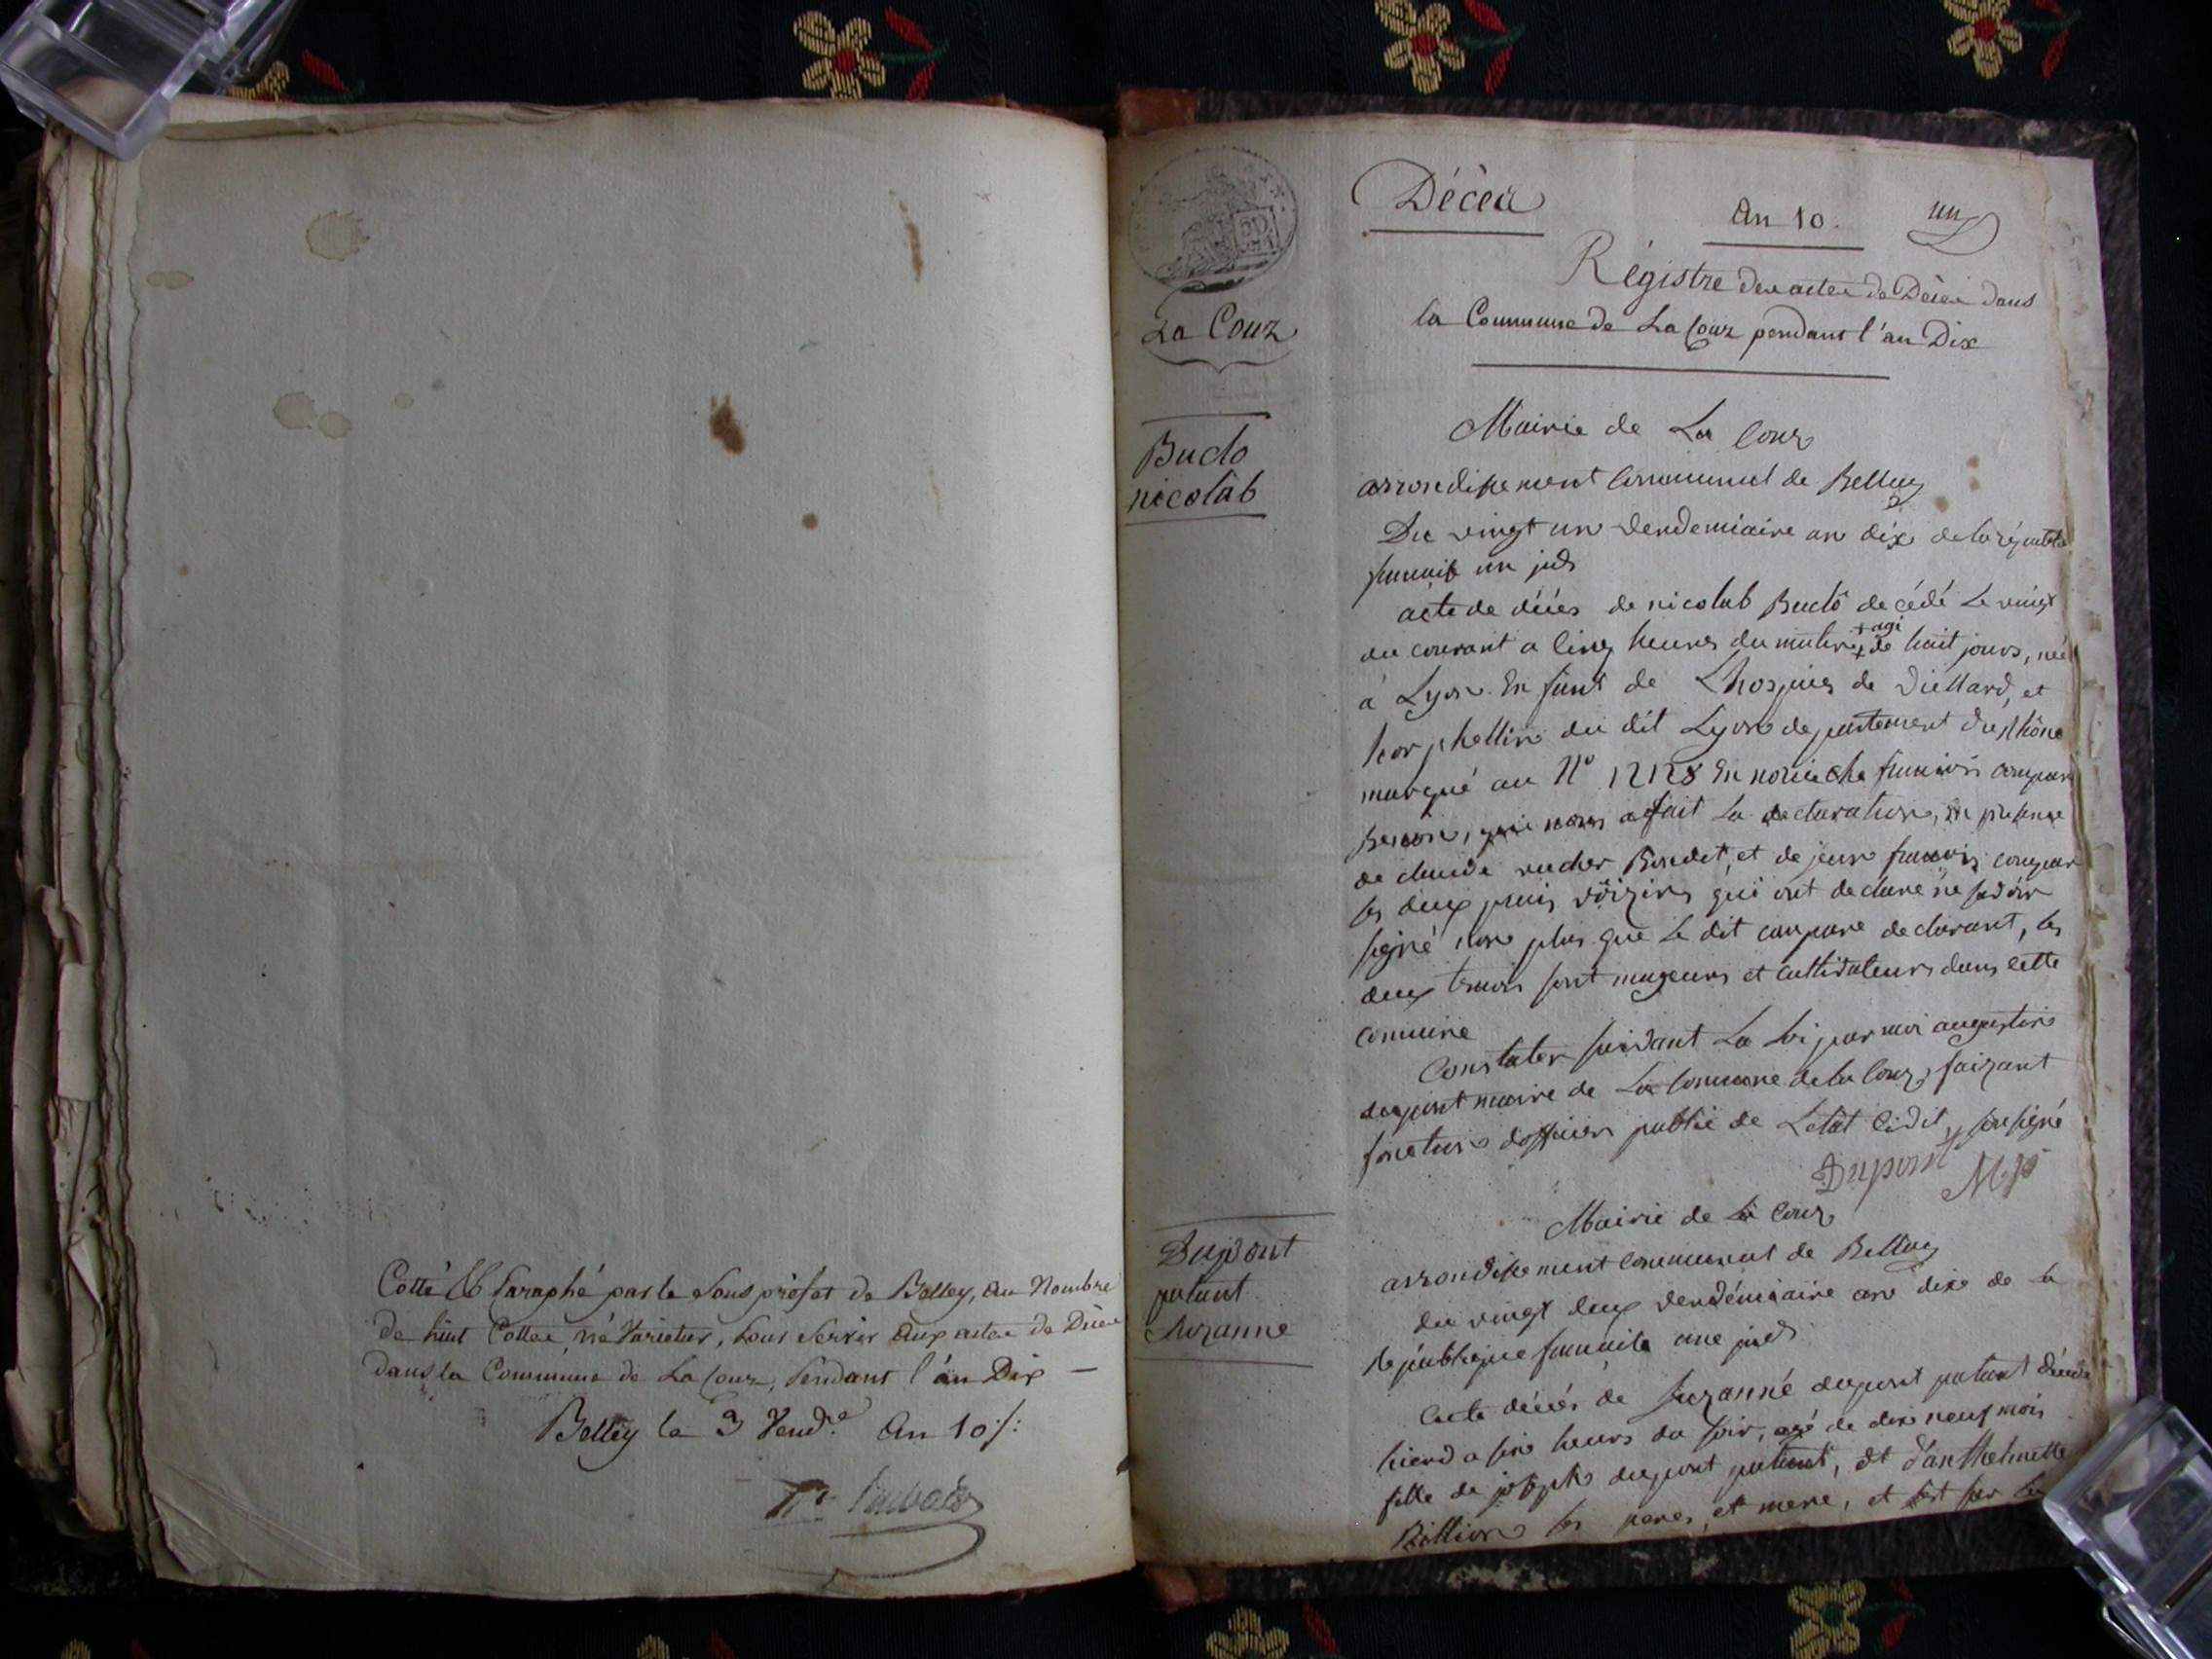 Cotté & Paraphé par le Sous préfet de Belley, au Nombre
de huit Cottes, né Varietur, pour Servir aux actes de Décès
dans la Commune de La Couz, pendant l'an Dix —
Belley le 3 Vend.re An 10 /:
La Couz
Décès
An 10.
un
Régistre des actes de Décès dans
la Commune de La Couz pendant l'an Dix
Budo
nicolàb
Mairie de La Couz
arrondissement Communal de Belley
Du vingt un vendemiaire an dix de la républ
acte de décés de nicolab Budô décédé le vingt
du courant a cinq heures du matin + agé de huit jours, né
à Lyon Enfant de Lhospices de viellard, et
horphellin du dit Lyon departement du Rhône
marqué au N° 12128 En nourice che francois compare
qui nous a fait La declaration, En presence
de claude rucher Bondet, et de jean francois compar
ses deux voizins qui ont declaré ne savoir
signé non plus que le dit compare declarant, les
deux temoin sont mageurs et cultivateurs dans cette
comune
Constater suivant La loi par moi augustin
dupont maire de La Comune de la Couz, faizant
fonction dofficier public de Letat Civil, sousigné
Dupont M.re
Dupont
patant
Suzanne
Mairie de la Couz
arrondissement Communal de Belley
du vingt deux vendémiaire an dix de la
république francaise une
acte décés de Suzanne dupont patant décedé
hierd a six heurs du soir, agé de dix neuf mois
fille de joseph dupont patant, et d'anthelmette
Billion ses peres, et mere, et sest sur la